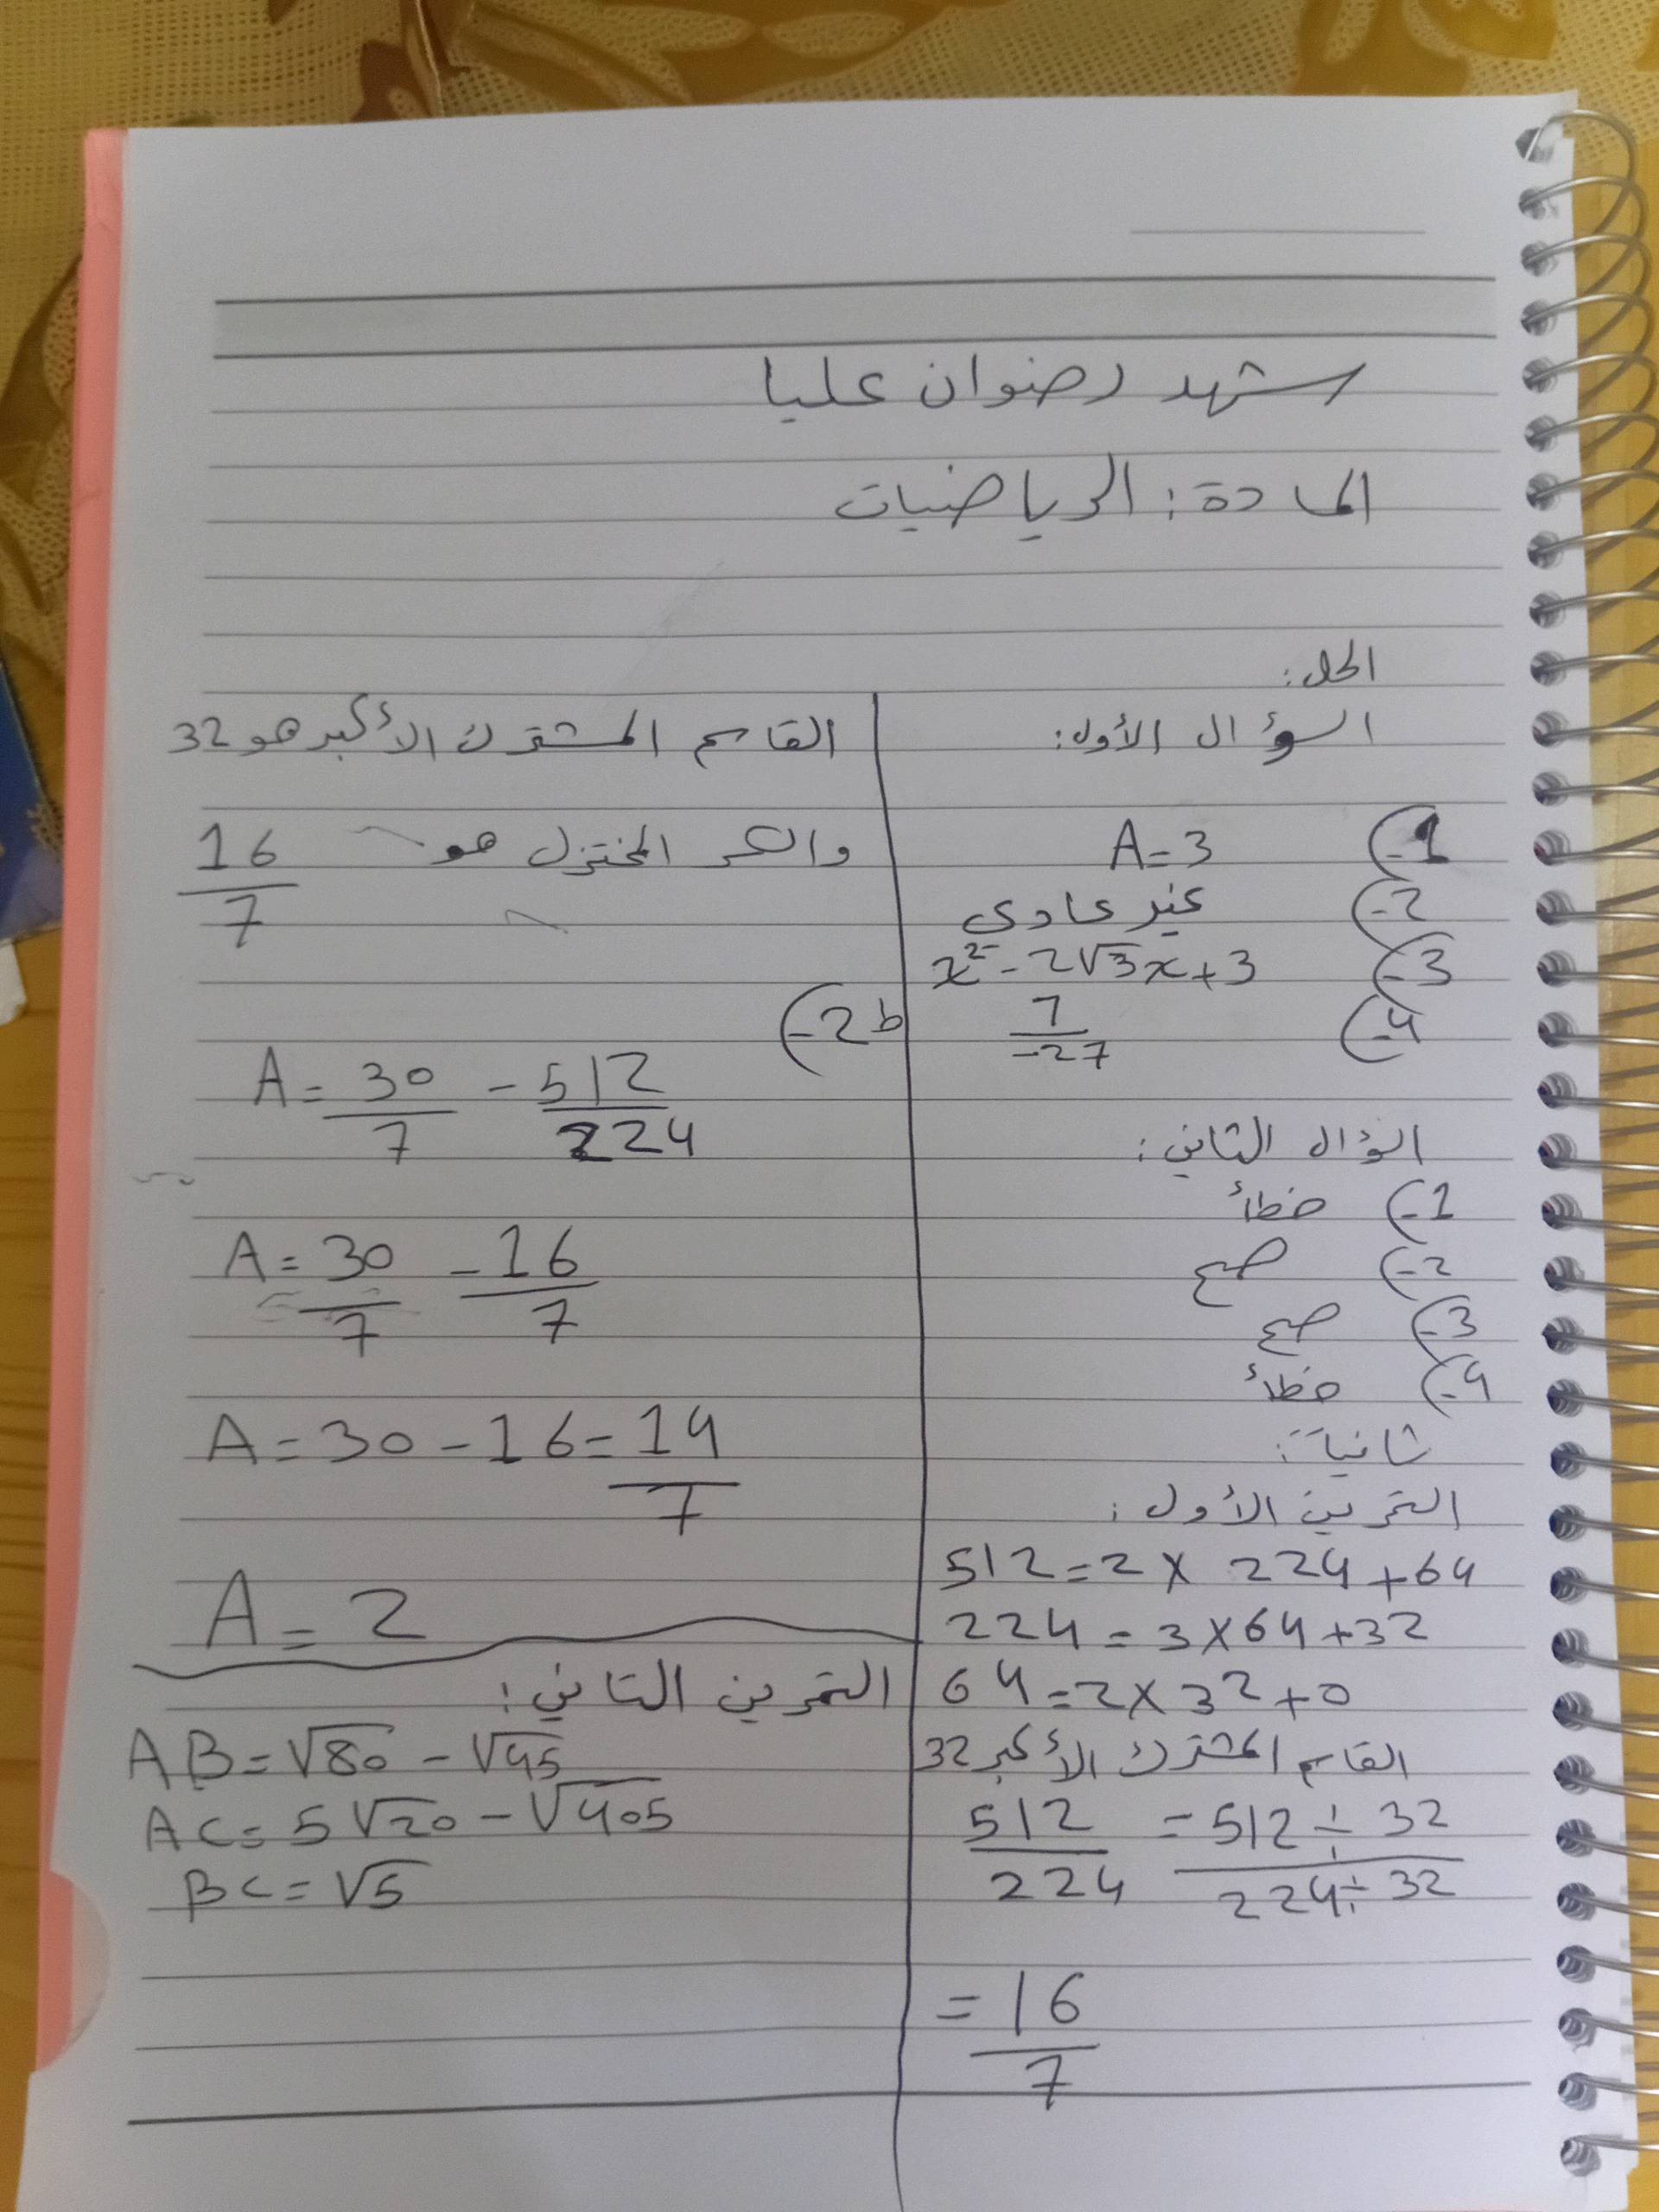 شهد رضوان عليا
المادة: الرياضيات
الحل:
السؤال الأول:
1-) A=3
2-) غير عادي
3-) x²-2√3x+3
4-) 7/-27
السؤال الثاني:
1-) خطأ
2-) صح
3-) صح
4-) خطأ
ثانياً:
التمرين الأول:
512=2×224+64
224=3×64+32
64=2×32+0
القاسم المشترك الأكبر 32
512/224 = 512÷32/224÷32
=16/7
القاسم المشترك الأكبر هو 32
والكسر المختزل هو 16/7
2-) b
A=30/7 - 512/224
A=30/7 - 16/7
A=30-16=14/7
A=2
التمرين الثاني:
AB=√80-√45
AC=5√20-√405
BC=√5